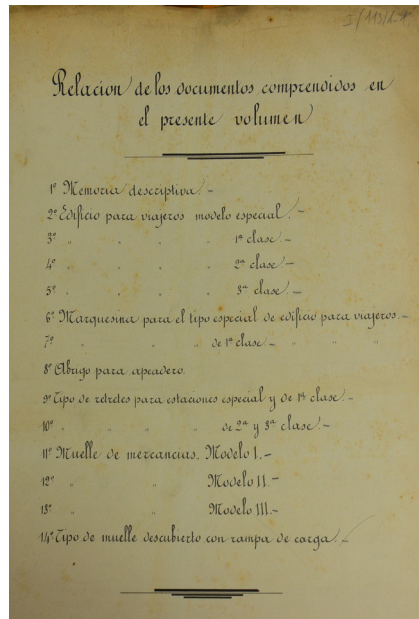 I/113/1-1
Relacion de los documentos comprendidos en
el presente volumen
1º Memoria descriptiva.-
2º Edificio para viajeros modelo especial.-
3º " " " " 1ª clase.-
4º " " " " 2ª clase.-
5º " " " " 3ª clase.-
6º Marquesina para el tipo especial de edificio para viajeros.-
7º " " " de 1ª clase.- " " "
8º Abrigo para apeadero.
9º Tipo de retretes para estaciones especial y de 1ª clase.-
10º " " " " de 2ª y 3ª clase.-
11º Muelle de mercancias. Modelo I.-
12º " " Modelo II.-
13º " " Modelo III.-
14º Tipo de muelle descubierto con rampa de carga.-